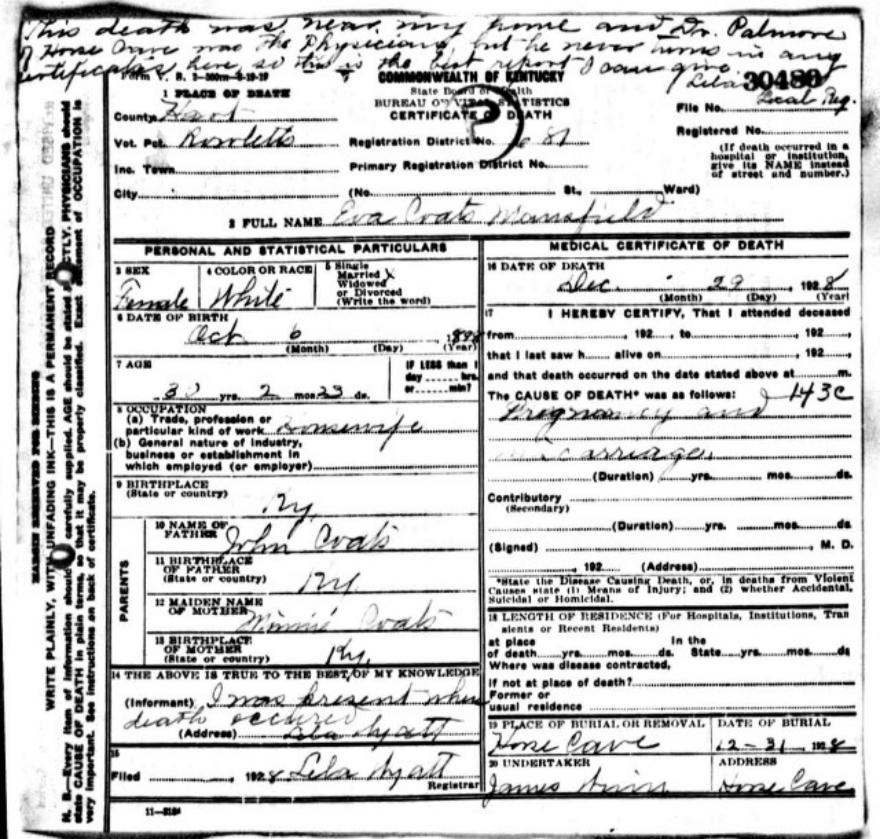 This death was near my home and Dr. Palmore
of Horse Cave was the Physician, but he never turns in any
certificates here, so this is the best report I can give
Lela
Local Reg.
30480
Form V. S. 2-300m-8-19-19
COMMONWEALTH OF KENTUCKY
State Board of Health
BUREAU OF VITAL STATISTICS
CERTIFICATE OF DEATH
1 PLACE OF DEATH
County Hart
Vot. Pct. Rowletts
Inc. Town
City
Registration District No. 681
Primary Registration District No.
(No. St., Ward)
File No.
Registered No.
(If death occurred in a
hospital or institution,
give its NAME instead
of street and number.)
2 FULL NAME Eva Coats Mansfield
PERSONAL AND STATISTICAL PARTICULARS
3 SEX
Female
4 COLOR OR RACE
White
5 Single
Married X
Widowed
or Divorced
(Write the word)
6 DATE OF BIRTH
Oct 6 , 1898
(Month) (Day) (Year)
7 AGE
30 yrs. 2 mos. 23 ds.
IF LESS than 1
day ...... hrs.
or ...... min?
8 OCCUPATION
(a) Trade, profession or
particular kind of work Housewife
(b) General nature of industry,
business or establishment in
which employed (or employer)
9 BIRTHPLACE
(State or country)
Ky.
PARENTS
10 NAME OF
FATHER John Coats
11 BIRTHPLACE
OF FATHER
(State or country) Ky.
12 MAIDEN NAME
OF MOTHER
Minnie Coats
13 BIRTHPLACE
OF MOTHER
(State or country) Ky.
14 THE ABOVE IS TRUE TO THE BEST OF MY KNOWLEDGE
(Informant) I was present when
death occured
(Address) Lela Hyatt
15
Filed , 1928 Lela Hyatt
Registrar
11-3184
MEDICAL CERTIFICATE OF DEATH
16 DATE OF DEATH
Dec. 29 , 1928
(Month) (Day) (Year)
17 I HEREBY CERTIFY, That I attended deceased
from , 192 , to , 192 ,
that I last saw h alive on , 192 ,
and that death occurred on the date stated above at m.
The CAUSE OF DEATH* was as follows: 143C
Pregnancy and
miscarriage.
(Duration) yrs. mos. ds.
Contributory
(Secondary)
(Duration) yrs. mos. ds
(Signed) , M. D.
, 192 (Address)
*State the Disease Causing Death, or, in deaths from Violent
Causes state (1) Means of Injury; and (2) whether Accidental,
Suicidal or Homicidal.
18 LENGTH OF RESIDENCE (For Hospitals, Institutions, Tran
sients or Recent Residents)
at place In the
of death yrs. mos. ds. State yrs. mos. ds
Where was disease contracted,
if not at place of death?
Former or
usual residence
19 PLACE OF BURIAL OR REMOVAL
Horse Cave
DATE OF BURIAL
12-31, 1928
20 UNDERTAKER
James
ADDRESS
Horse Cave
MARGIN RESERVED FOR BINDING
WRITE PLAINLY, WITH UNFADING INK—THIS IS A PERMANENT RECORD
N. B.—Every item of information should be carefully supplied. AGE should be stated EXACTLY. PHYSICIANS should
state CAUSE OF DEATH in plain terms, so that it may be properly classified. Exact statement of OCCUPATION is
very important. See instructions on back of certificate.